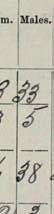 m. Males.
33
5
38